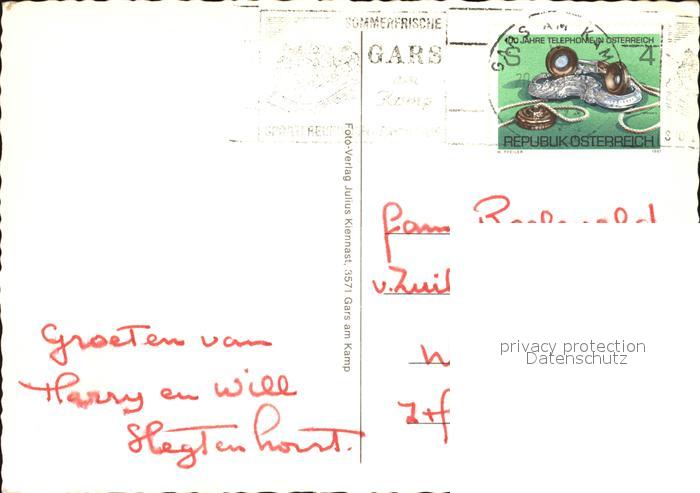 SOMMERFRISCHE
GARS
am
Kamp
GARS AM KAMP
100 JAHRE TELEPHONIE IN ÖSTERREICH
S 4
REPUBLIK ÖSTERREICH
1981
Foto-Verlag Julius Kiennast, 3571 Gars am Kamp
fam
v. Zuil
Groeten van
Harry en Will
Slegtenhorst.
privacy protection
Datenschutz